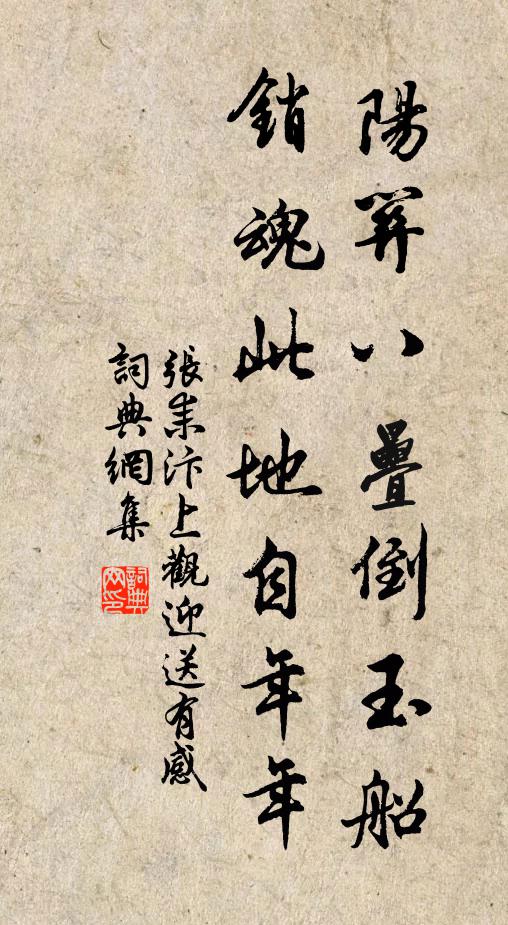 陽關八疊倒玉船
銷魂此地自年年
張耒汴上觀迎送有感
詞典網集
詞典
网印